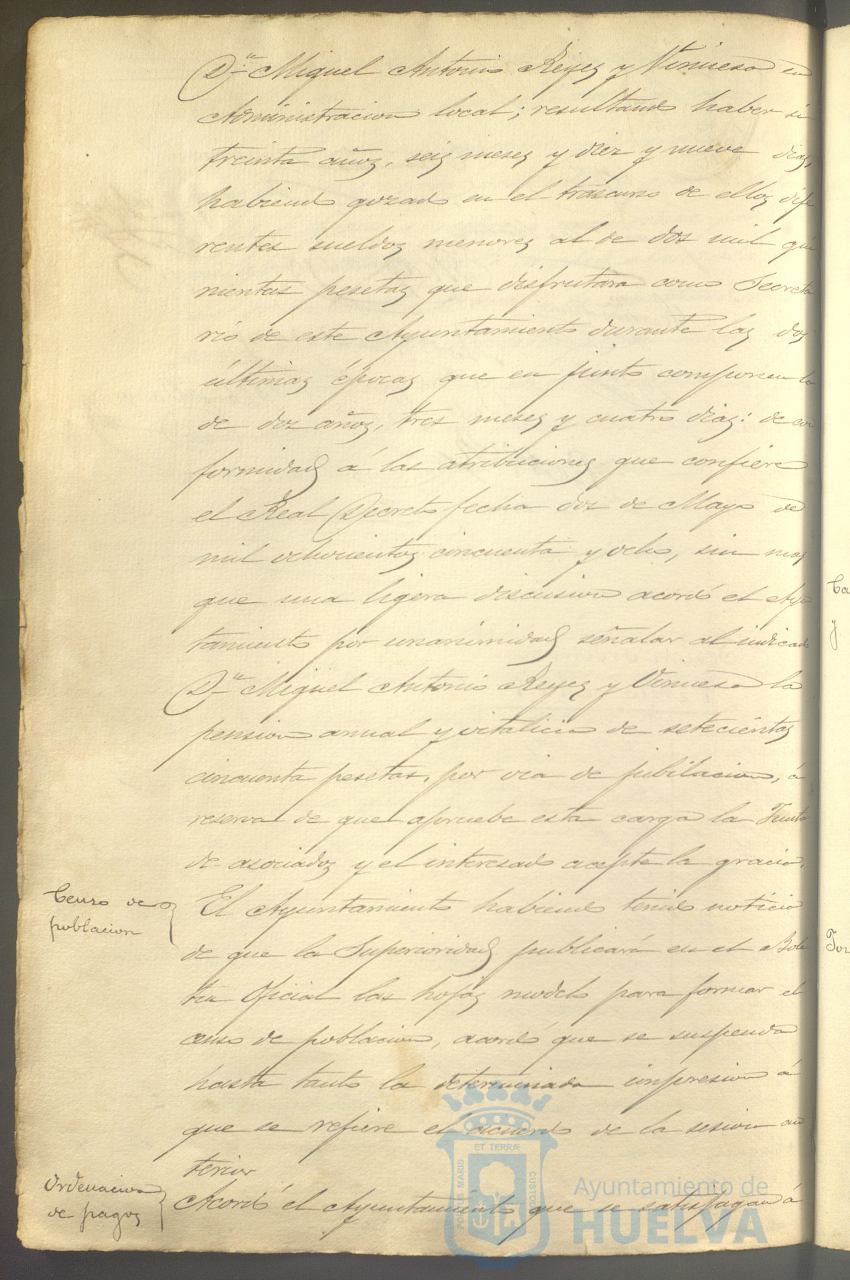 Dn. Miguel Antonio Reyes y Viniesa en
Administracion local; resultando haber si
treinta años, seis meses y diez y nueve dias,
habiendo gozado en el trascurso de ellos dife
rentes sueldos menores al de dos mil qui
nientas pesetas que disfrutara como Secreta
rio de este Ayuntamiento durante las dos
últimas épocas que en junto componen la
de dos años, tres meses y cuatro dias: de con
formidad á las atribuciones que confiere
el Real Decreto fecha dos de Mayo de
mil ochocientos cincuenta y ocho, sin mas
que una ligera discusion acordó el Ayun
tamiento por unanimidad señalar al indicado
Dn. Miguel Antonio Reyes y Viniesa la
pension anual y vitalicia de setecientas
cincuenta pesetas, por via de jubilacion, á
reserva de que apruebe esta carga la Junta
de asociados y el interesado acepte la gracia.
Censo de
poblacion
El Ayuntamiento habiendo tenido noticia
de que la Superioridad publicará en el Bole
tin Oficial las hojas modelo para formar el
censo de poblacion, acordó que se suspenda
hasta tanto la determinada impresion á
que se refiere el acuerdo de la sesion an
terior
Ordenacion
de pagos
Acordó el Ayuntamiento que se satisfagan á
PORTUS MARIS
ET TERRÆ
CUSTODIA
Ayuntamiento de
HUELVA